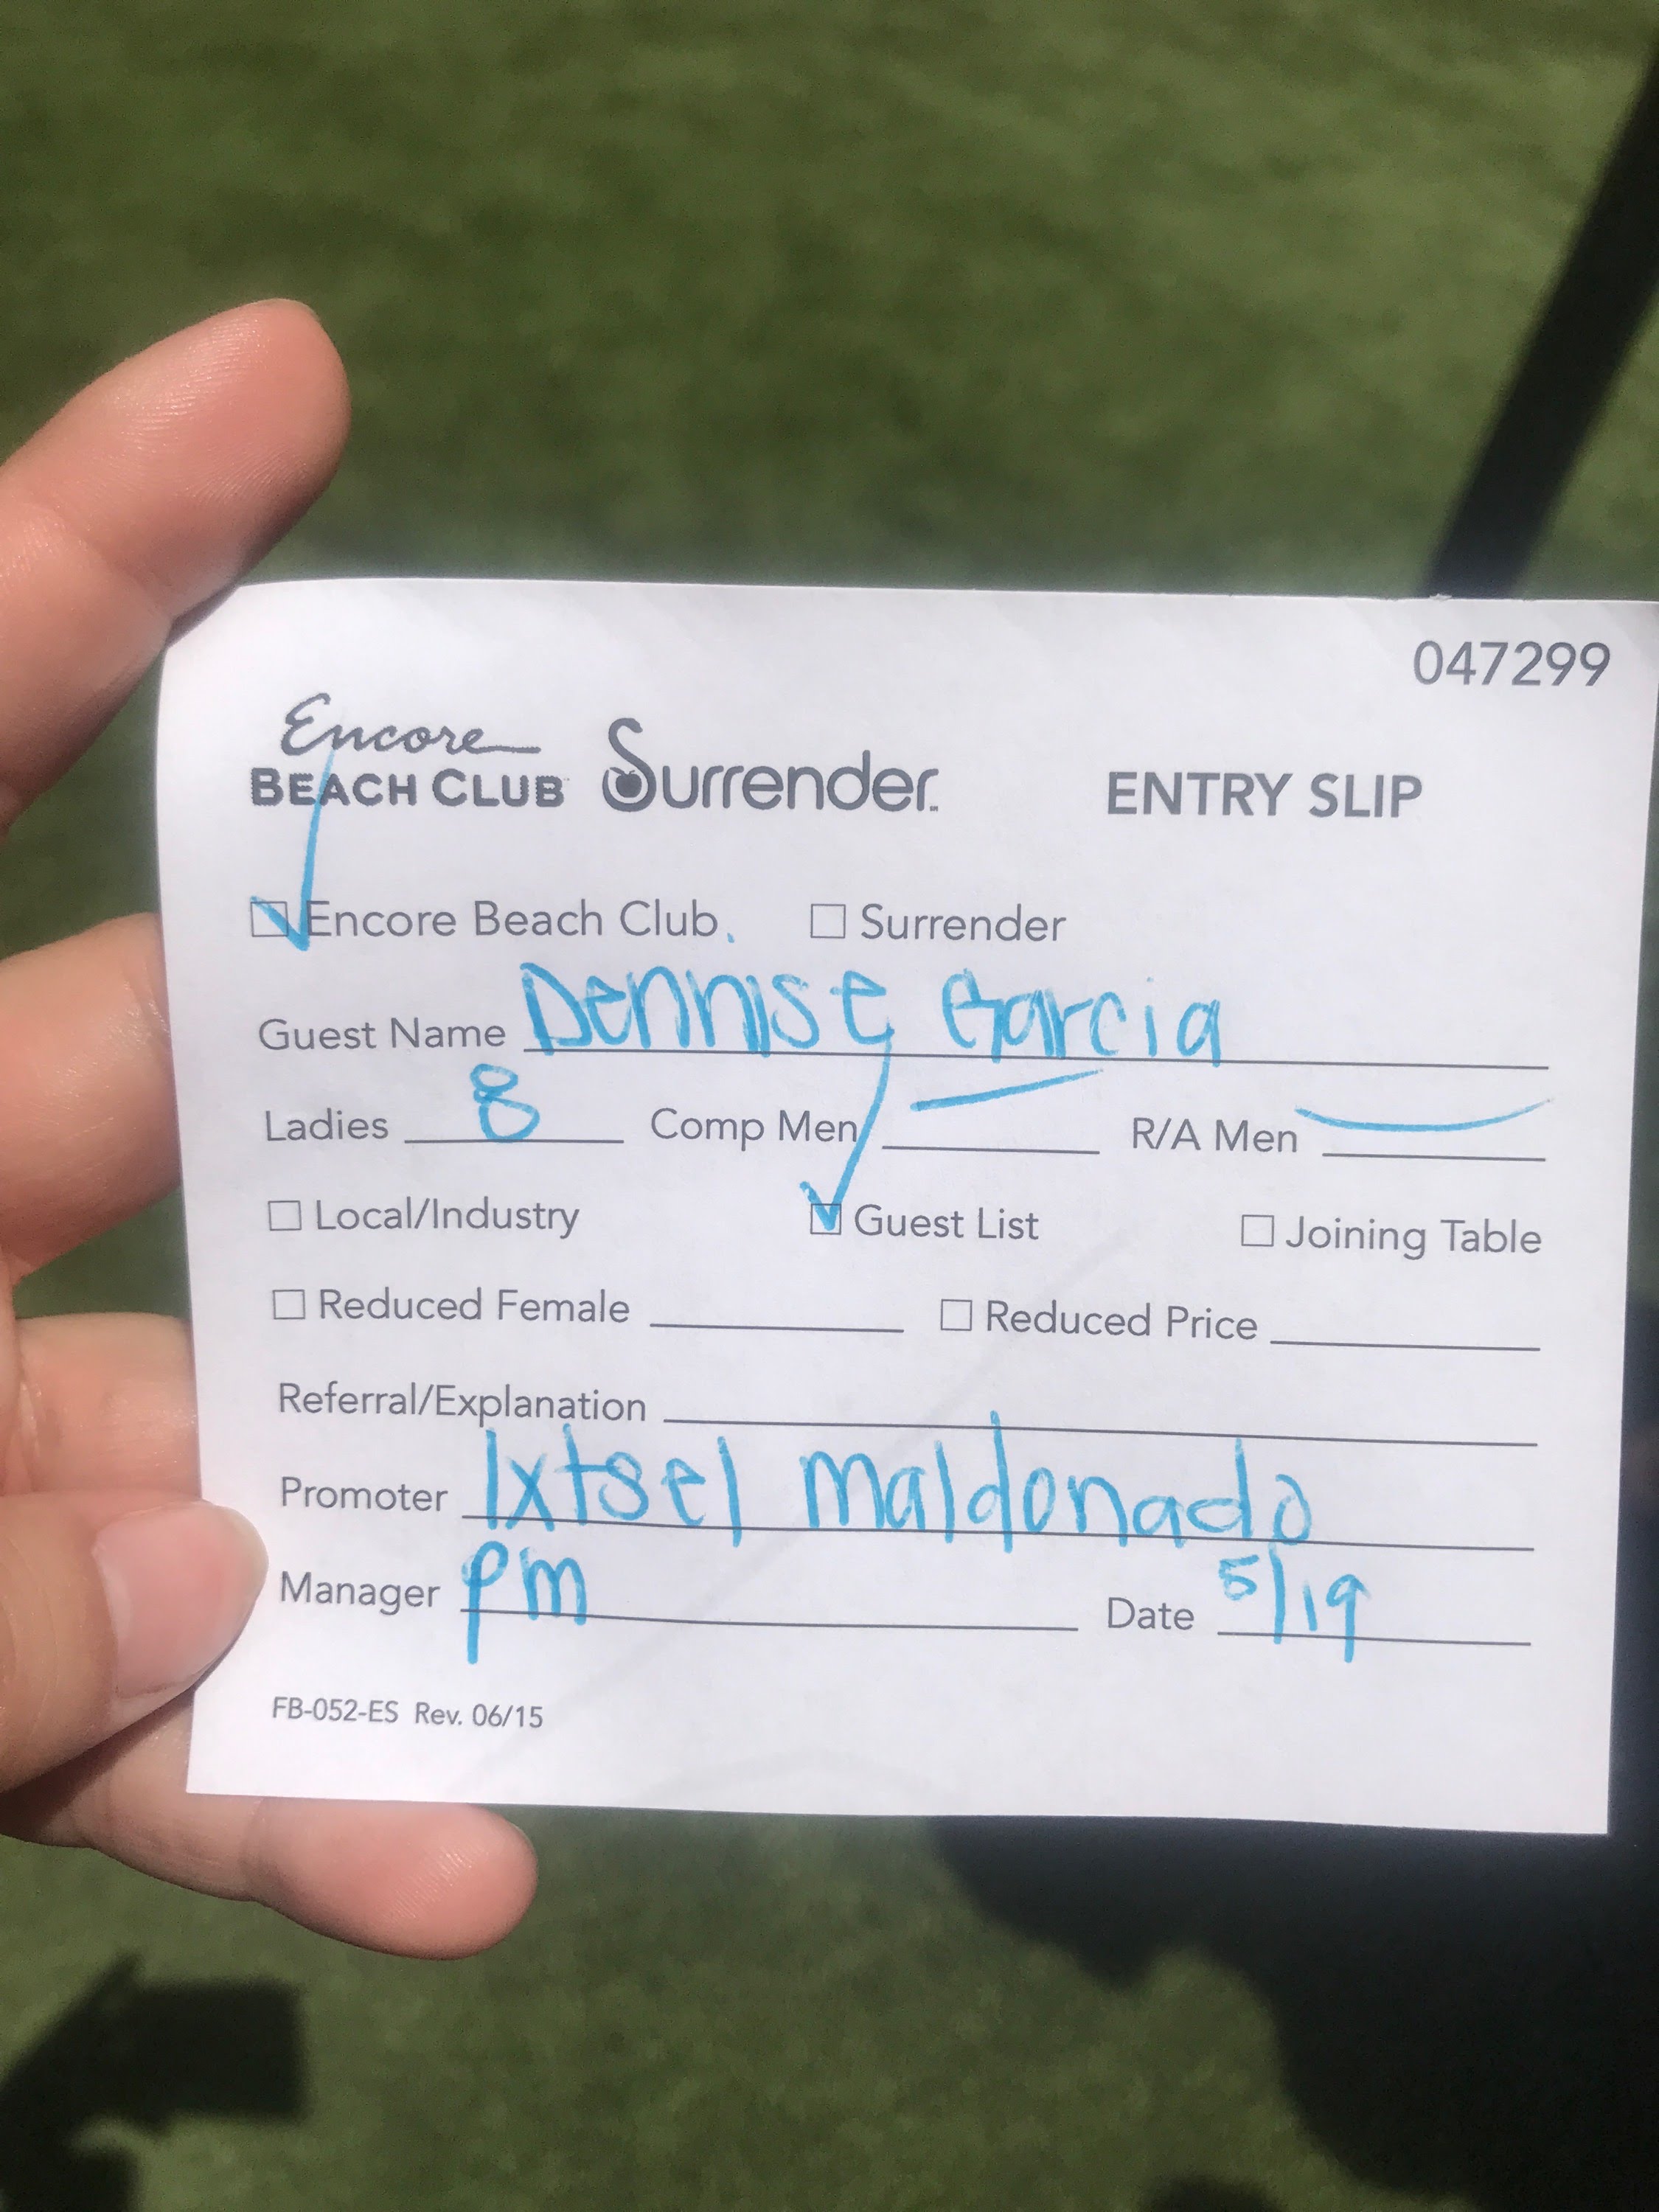 047299
Encore
BEACH CLUB Surrender. ENTRY SLIP
Encore Beach Club Surrender
Guest Name Dennise Garcia
Ladies 8 Comp Men R/A Men
Local/Industry Guest List Joining Table
Reduced Female Reduced Price
Referral/Explanation
Promoter Ixtsel Maldonado
Manager pm Date 5/19
FB-052-ES Rev. 06/15